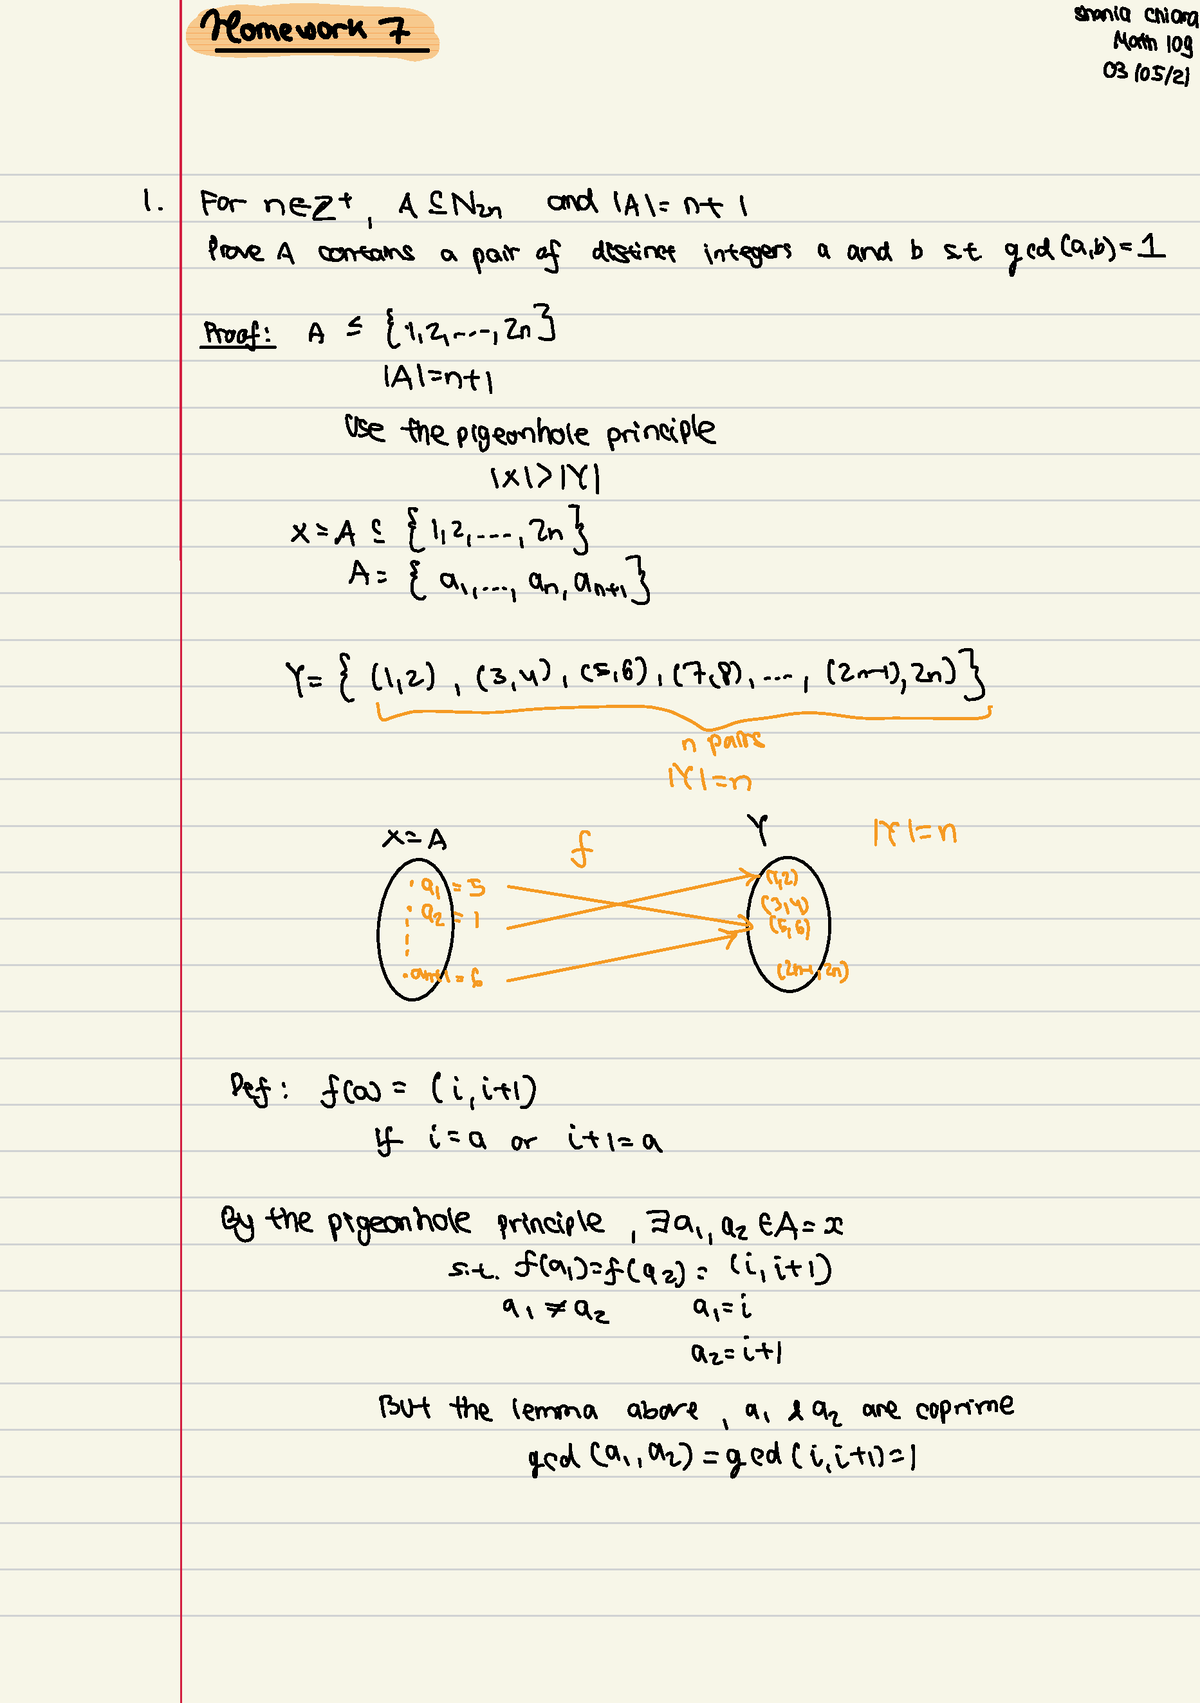 Homework 7
Shania Chiara
Math 109
03/05/21
1. For n∈Z⁺, A ⊆ N₂ₙ and |A| = n+1
Prove A contains a pair of distinct integers a and b s.t gcd(a,b)=1
Proof: A ≤ {1,2,...,2n}
|A|=n+1
Use the pigeonhole principle
|X|>|Y|
X = A ⊆ {1,2,...,2n}
A = {a₁,...,aₙ,aₙ₊₁}
Y = {(1,2), (3,4), (5,6), (7,8), ..., (2n-1),2n)}
n pairs
|Y|=n
X=A f Y |Y|=n
·a₁ = 5 (1,2)
·a₂ = 1 (3,4)
(5,6)
·aₙ₊₁ = 6 (2n-1,2n)
Def: f(a) = (i,i+1)
if i=a or i+1=a
By the pigeonhole principle, ∃a₁,a₂ ∈A=x
s.t. f(a₁)=f(a₂) = (i,i+1)
a₁ ≠ a₂ a₁=i
a₂=i+1
But the lemma above, a₁ & a₂ are coprime
gcd(a₁,a₂) = gcd(i,i+1)=1